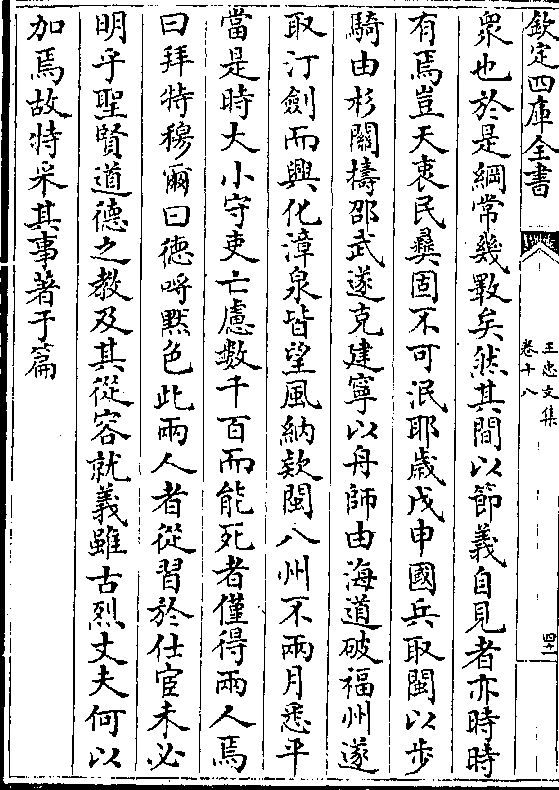 欽定四庫全書
王忠文集
卷十八
四十
衆也於是綱常幾斁矣然其間以節義自見者亦時時
有焉豈天衷民彝固不可泯耶歳戊申國兵取閩以步
騎由杉關擣邵武遂克建寧以舟師由海道破福州遂
取汀劍而興化漳泉皆望風納欵閩八州不兩月悉平
當是時大小守吏亡慮數千百而能死者僅得兩人焉
曰拜特穆爾曰徳呼黙色此兩人者從習於仕宦未必
明乎聖賢道德之教及其從容就義雖古烈丈夫何以
加焉故特采其事著于篇